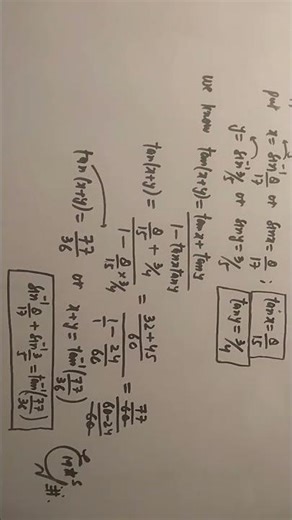 put x = sin⁻¹ 8/17 or sinx = 8/17 ; tanx = 8/15
y = sin⁻¹ 3/5 or siny = 3/5 tany = 3/4
we know tan(x+y) = tanx + tany / 1 - tanx tany
tan(x+y) = 8/15 + 3/4 / 1 - 8/15 × 3/4 = 32+45/60 / 1/1 - 24/60 = 77/60 / 60-24/60
tan(x+y) = 77/36 or x+y = tan⁻¹(77/36)
sin⁻¹ 8/17 + sin⁻¹ 3/5 = tan⁻¹(77/36)